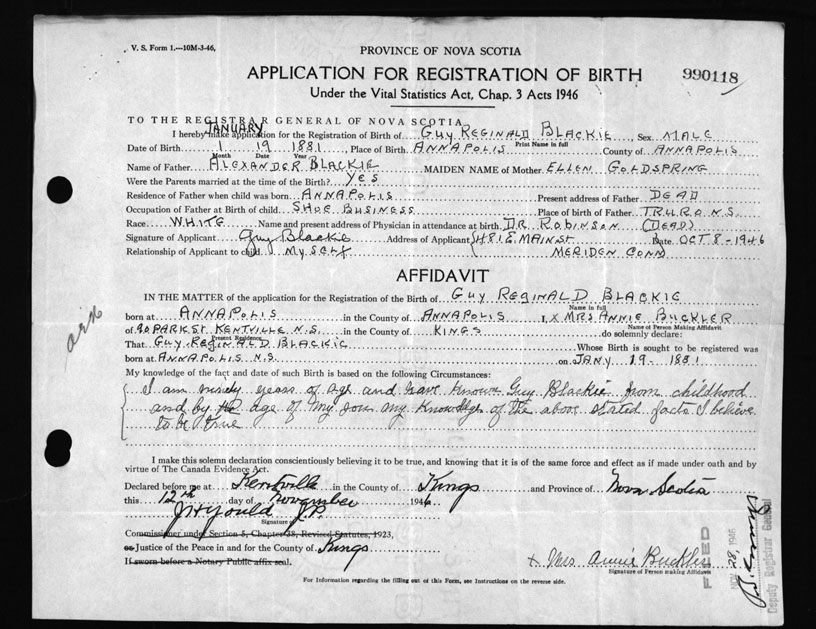 V. S. Form 1.—10M-3-46.
PROVINCE OF NOVA SCOTIA
APPLICATION FOR REGISTRATION OF BIRTH
990118
Under the Vital Statistics Act, Chap. 3 Acts 1946
TO THE REGISTRAR GENERAL OF NOVA SCOTIA
JANUARY
I hereby make application for the Registration of Birth of GUY REGINALD BLACKIE, Sex MALE
Print Name in full
Date of Birth 1 19 1881, Place of Birth ANNAPOLIS County of ANNAPOLIS
Month Date Year
Name of Father ALEXANDER BLACKIE MAIDEN NAME of Mother ELLEN GOLDSPRING
Were the Parents married at the time of the Birth? YES
Residence of Father when child was born ANNAPOLIS Present address of Father DEAD
Occupation of Father at Birth of child SHOE BUSINESS Place of birth of Father TRURO N.S.
Race WHITE Name and present address of Physician in attendance at birth DR ROBINSON (DEAD)
Signature of Applicant Guy Blackie Address of Applicant 481 E MAIN ST Date OCT 8-1946
Relationship of Applicant to child MYSELF MERIDEN CONN
AFFIDAVIT
IN THE MATTER of the application for the Registration of the Birth of GUY REGINALD BLACKIE
Name in full
born at ANNAPOLIS in the County of ANNAPOLIS I, X MRS ANNIE BUCKLER
Name of Person Making Affidavit
of 90 PARK ST. KENTVILLE N.S. in the County of KINGS do solemnly declare:
Present Residence
That GUY REGINALD BLACKIE Whose Birth is sought to be registered was
born at ANNAPOLIS N.S. on JANY 19-1881
My knowledge of the fact and date of such Birth is based on the following Circumstances:
I am ninety years of age and have known Guy Blackie from childhood
and by age of my son my knowledge of the above stated facts I believe
to be true
I make this solemn declaration conscientiously believing it to be true, and knowing that it is of the same force and effect as if made under oath and by
virtue of The Canada Evidence Act.
Declared before me at Kentville in the County of Kings and Province of Nova Scotia
this 12th day of November 1946
J.P.
Signature of
Commissioner under Section 5, Chapter 38, Revised Statutes, 1923,
or Justice of the Peace in and for the County of Kings
If sworn before a Notary Public affix seal.
x Mrs Annie Buckler
Signature of Person making Affidavit
For Information regarding the filling out of this Form, see Instructions on the reverse side.
FILED
NOV 28, 1946
Deputy Registrar General